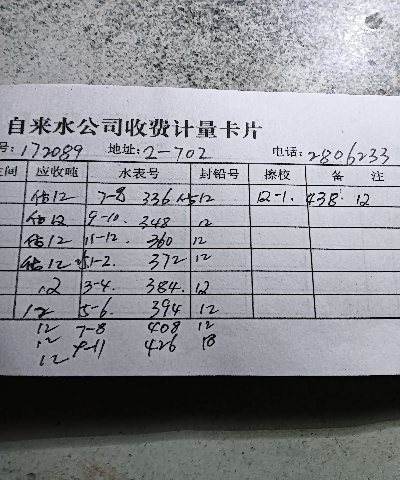 自来水公司收费计量卡片
号: 172089 地址: 2-702 电话: 2806233
间 应收吨 水表号 封铅号 擦校 备 注
估12 7-8 336 估12 12-1. 438. 12
估12 9-10. 348 12
估12 11-12. 360 12
估12 1-2. 372 12
12 3-4. 384. 12
12 5-6. 394 12
12 7-8 408 12
12 9-11 426 18
12